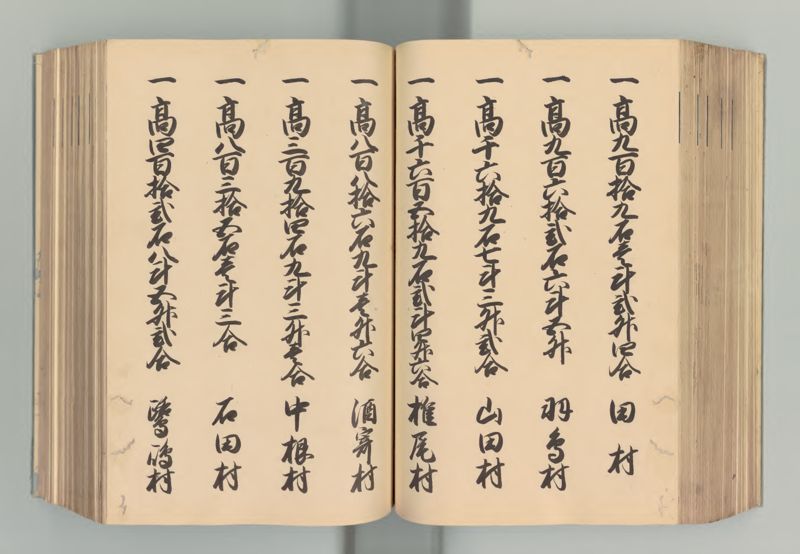 一 高九百拾九石壱斗弐升四合 田村
一 高九百六拾弐石六斗五升 羽鳥村
一 高千六拾九石七斗三升弐合 山田村
一 高千六百五拾九石弐斗四升六合 椎尾村
一 高八百八拾六石九斗壱升六合 酒寄村
一 高三百九拾四石九斗三升壱合 中根村
一 高八百三拾五石壱斗三合 石田村
一 高四百拾弐石八斗五升弐合 鷺嶋村